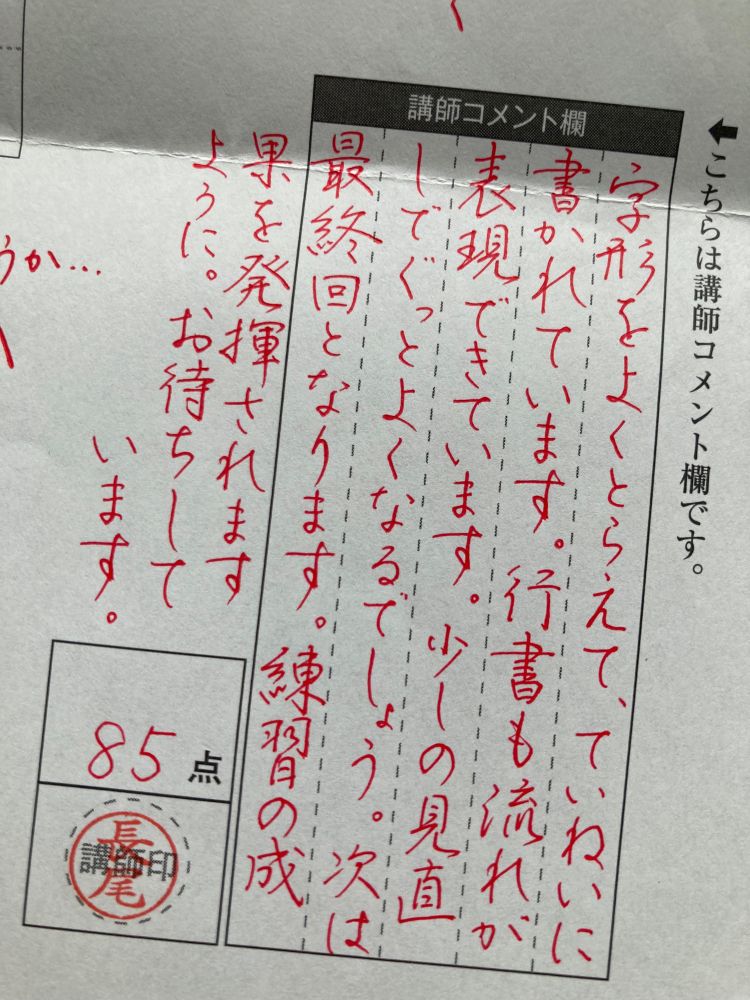 ←こちらは講師コメント欄です。
講師コメント欄
字形をよくとらえて、ていねいに
書かれています。行書も流れが
表現できています。少しの見直
しでぐっとよくなるでしょう。次は
最終回となります。練習の成
果を発揮されます
ように。お待ちして
います。
うか…
85点
講師印
長尾